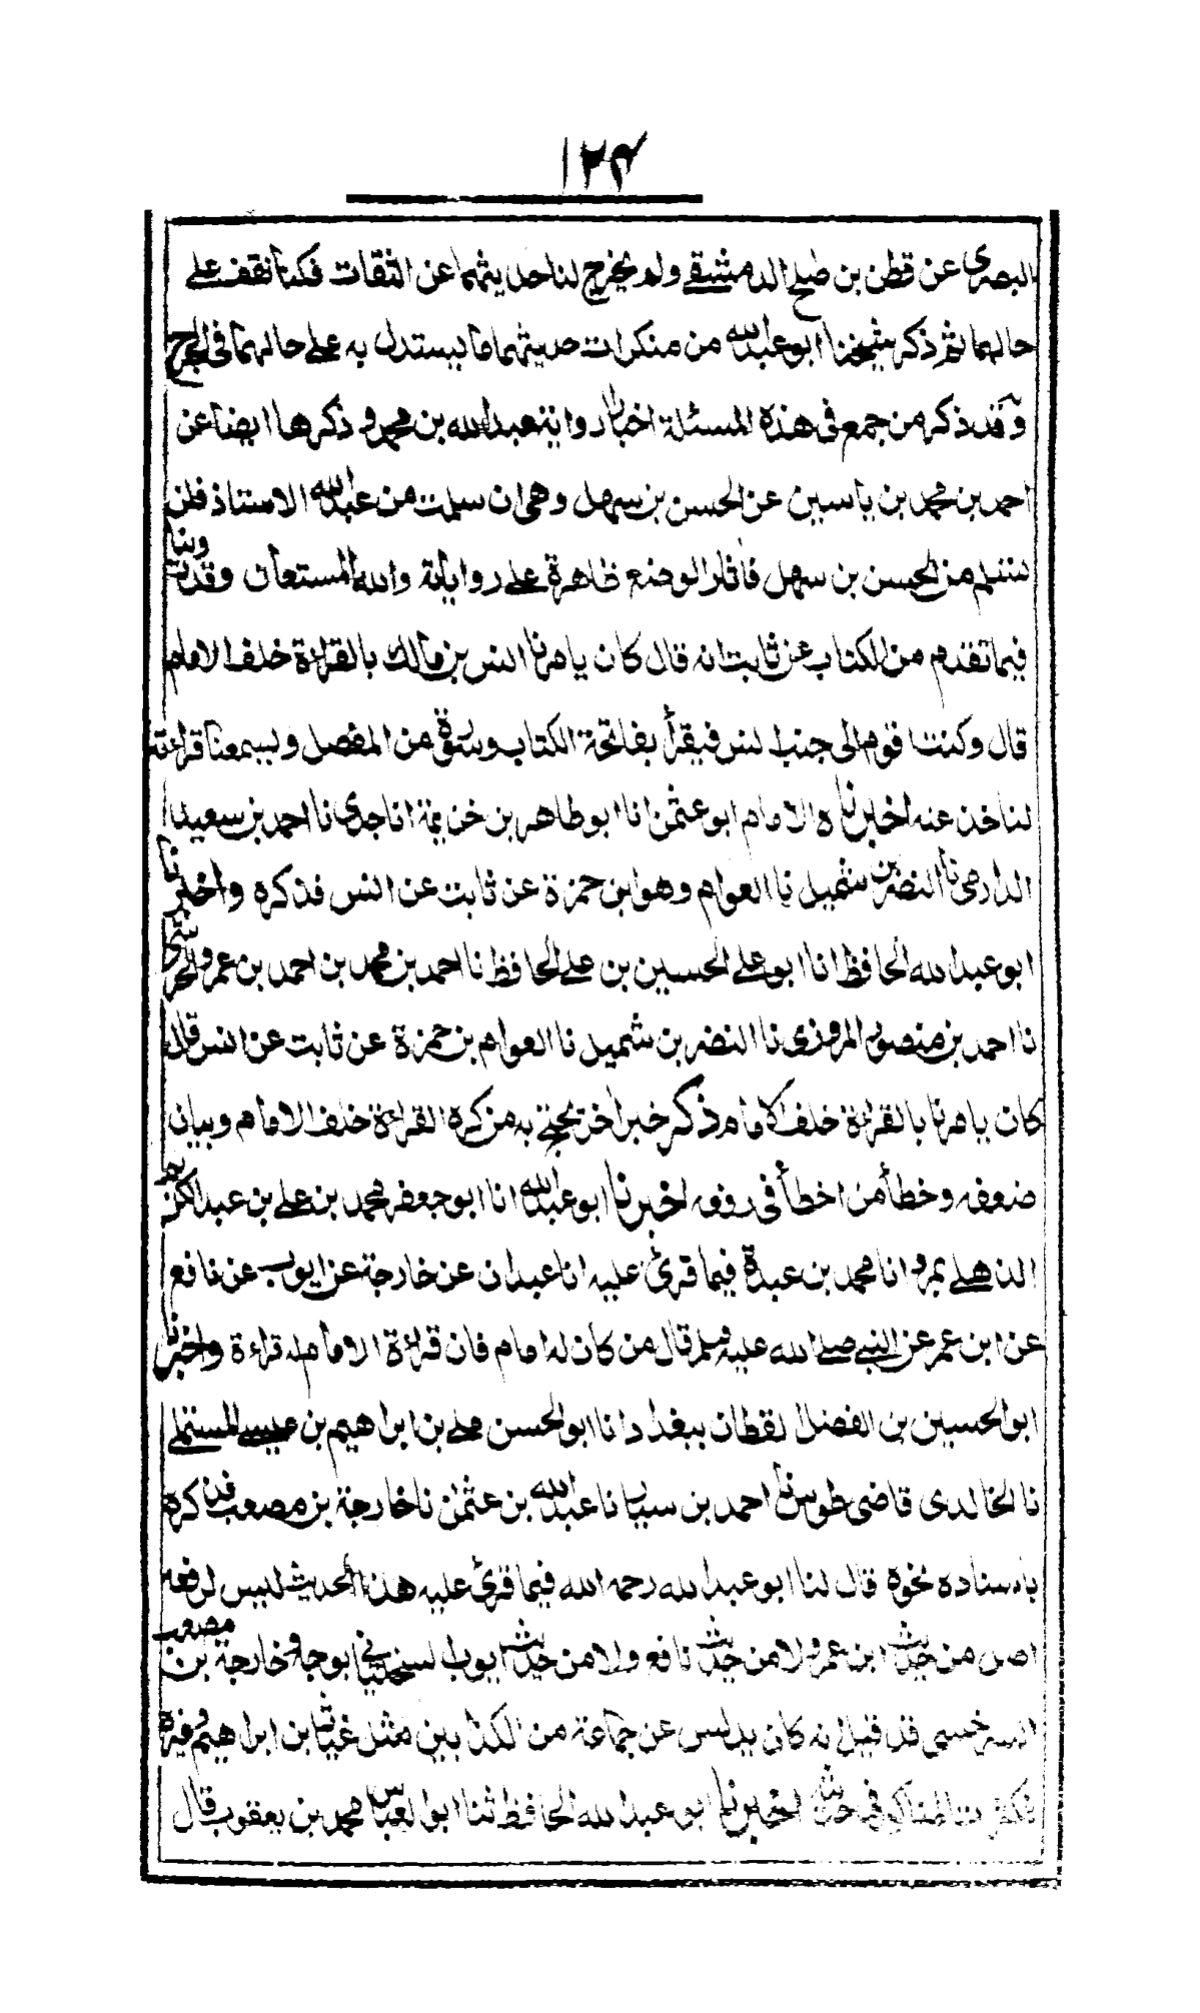 ١٢٤
البصرى عن قطن بن صلح الدمشقے ولم يخرج لنا حديثهما عن الثقات فكنا نقف علے
حالهما ثم ذكر شيخنا ابو عبد الله من منكرات حديثهما ما يستدل به علے حالهما فى الجرح
وقد ذكر من جمع فى هذه المسئلة اخبارا رواية عبد الله بن محمد و ذكرها ايضا عن
احمد بن محمد بن ياسين عن الحسن بن سهل وهى ان سلمت من عبد الله الاستاذ فلن
تسلم من الحسن بن سهل فاثار الوضع ظاهرة علے روايته والله المستعان وقد روينا
فيما تقدم من الكتاب عن ثابت انه قال كان يامرنا انس بن مالك بالقراءة خلف الامام
قال وكنت اقوم الى جنب انس فيقرأ بفاتحة الكتاب وسورة من المفصل ويسمعنا قراءته
لناخذ عنه اخبرناه الامام ابو عثمن انا ابو طاهر بن خزيمة انا جدى نا احمد بن سعيد
الدارمى نا النضر بن شميل نا العوام وهو ابن حمزة عن ثابت عن انس فذكره واخبرنا
ابو عبد الله الحافظ انا ابو علے الحسين بن علے الحافظ نا احمد بن محمد بن احمد بن عمرو الحرشى
نا احمد بن منصور المروزى نا النضر بن شميل نا العوام بن حمزة عن ثابت عن انس قال
كان يامرنا بالقراءة خلف الامام ذكر خبر اخر يحتج به من كره القراءة خلف الامام وبيان
ضعفه وخطأ من اخطأ فى رفعه اخبرنا ابو عبد الله انا ابو جعفر محمد بن علے بن عبد الكريم
الذهلے بمرو انا محمد بن عبدة فيما قرئ عليه انا عبدان عن خارجة عن ايوب عن نافع
عن ابن عمر عن النبے صلے الله عليه وسلم قال من كان له امام فان قراءة الامام له قراءة واخبرنا
ابو الحسين بن الفضل القطان ببغداد انا ابو الحسن علے بن ابراهيم بن عيسے المستملے
نا الخالدى قاضى طوس نا احمد بن سيار نا عبد الله بن عثمن نا خارجة بن مصعب فذكره
باسناده نحوه قال لنا ابو عبد الله رحمه الله فيما قرئ عليه هذا الحديث ليس لرفعه
اصل من حديث ابن عمر ولا من حديث نافع ولا من حديث ايوب السختيانى بوجه وخارجة بن مصعب
السرخسى قد قيل انه كان يدلس عن جماعة من الكذابين مثل غياث بن ابراهيم وغيره
فكثرت المناكير فى حديثه اخبرنا ابو عبد الله الحافظ ثنا ابو العباس محمد بن يعقوب قال